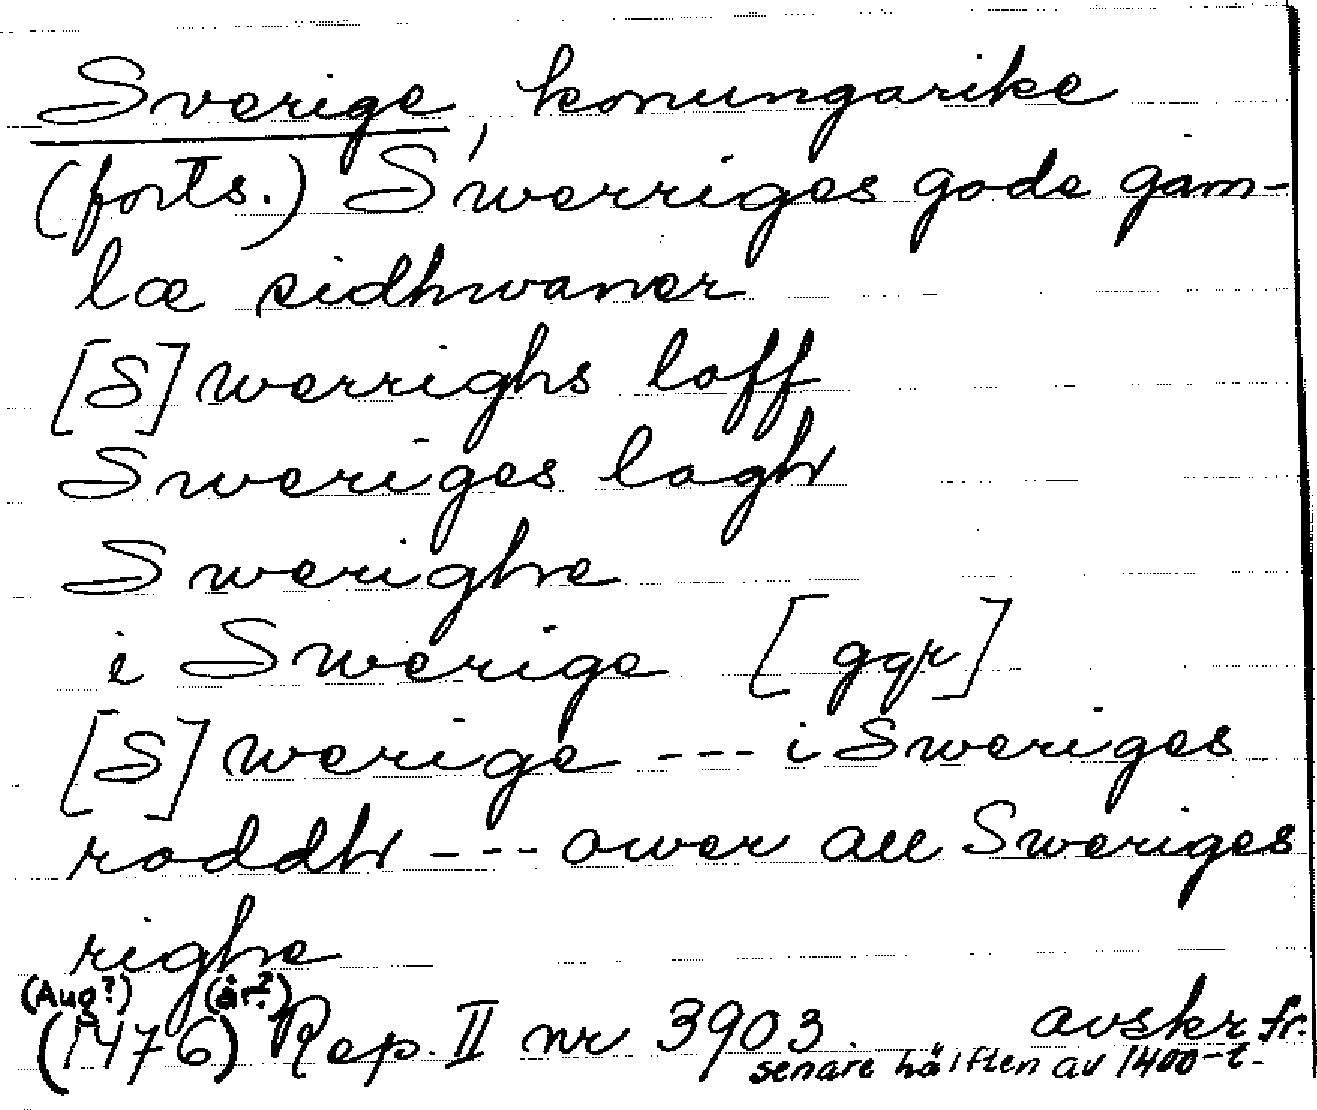 Sverige, konungarike
(forts.) Swerriges gode gam-
læ sidhwaner
[S]werrighs loff
Sweriges lagh
Swerighe
i Swerige [ggr]
[S]werige --- i Sweriges
raddh --- ower all Sweriges
righe
(Aug?) (år?)
(1476) Rep. II nr 3903. avskr fr.
senare hälften av 1400-t.